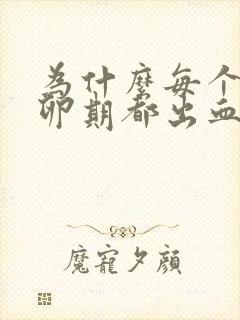 为什麼每个
卵期都出血
魔寵夕顔